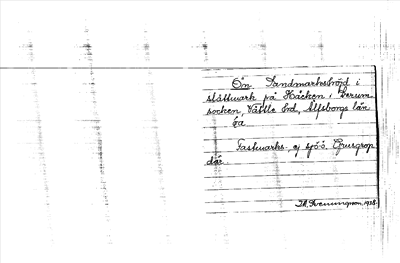 Ön. Sandmarkshöjd i
slåttmark på Häcken i Gerum
socken, Vättle hd, Älfsborgs län
öa
Fastmarks- ej sjö-ö. Grusgrop
där.
Th. Svenungsson, 1928